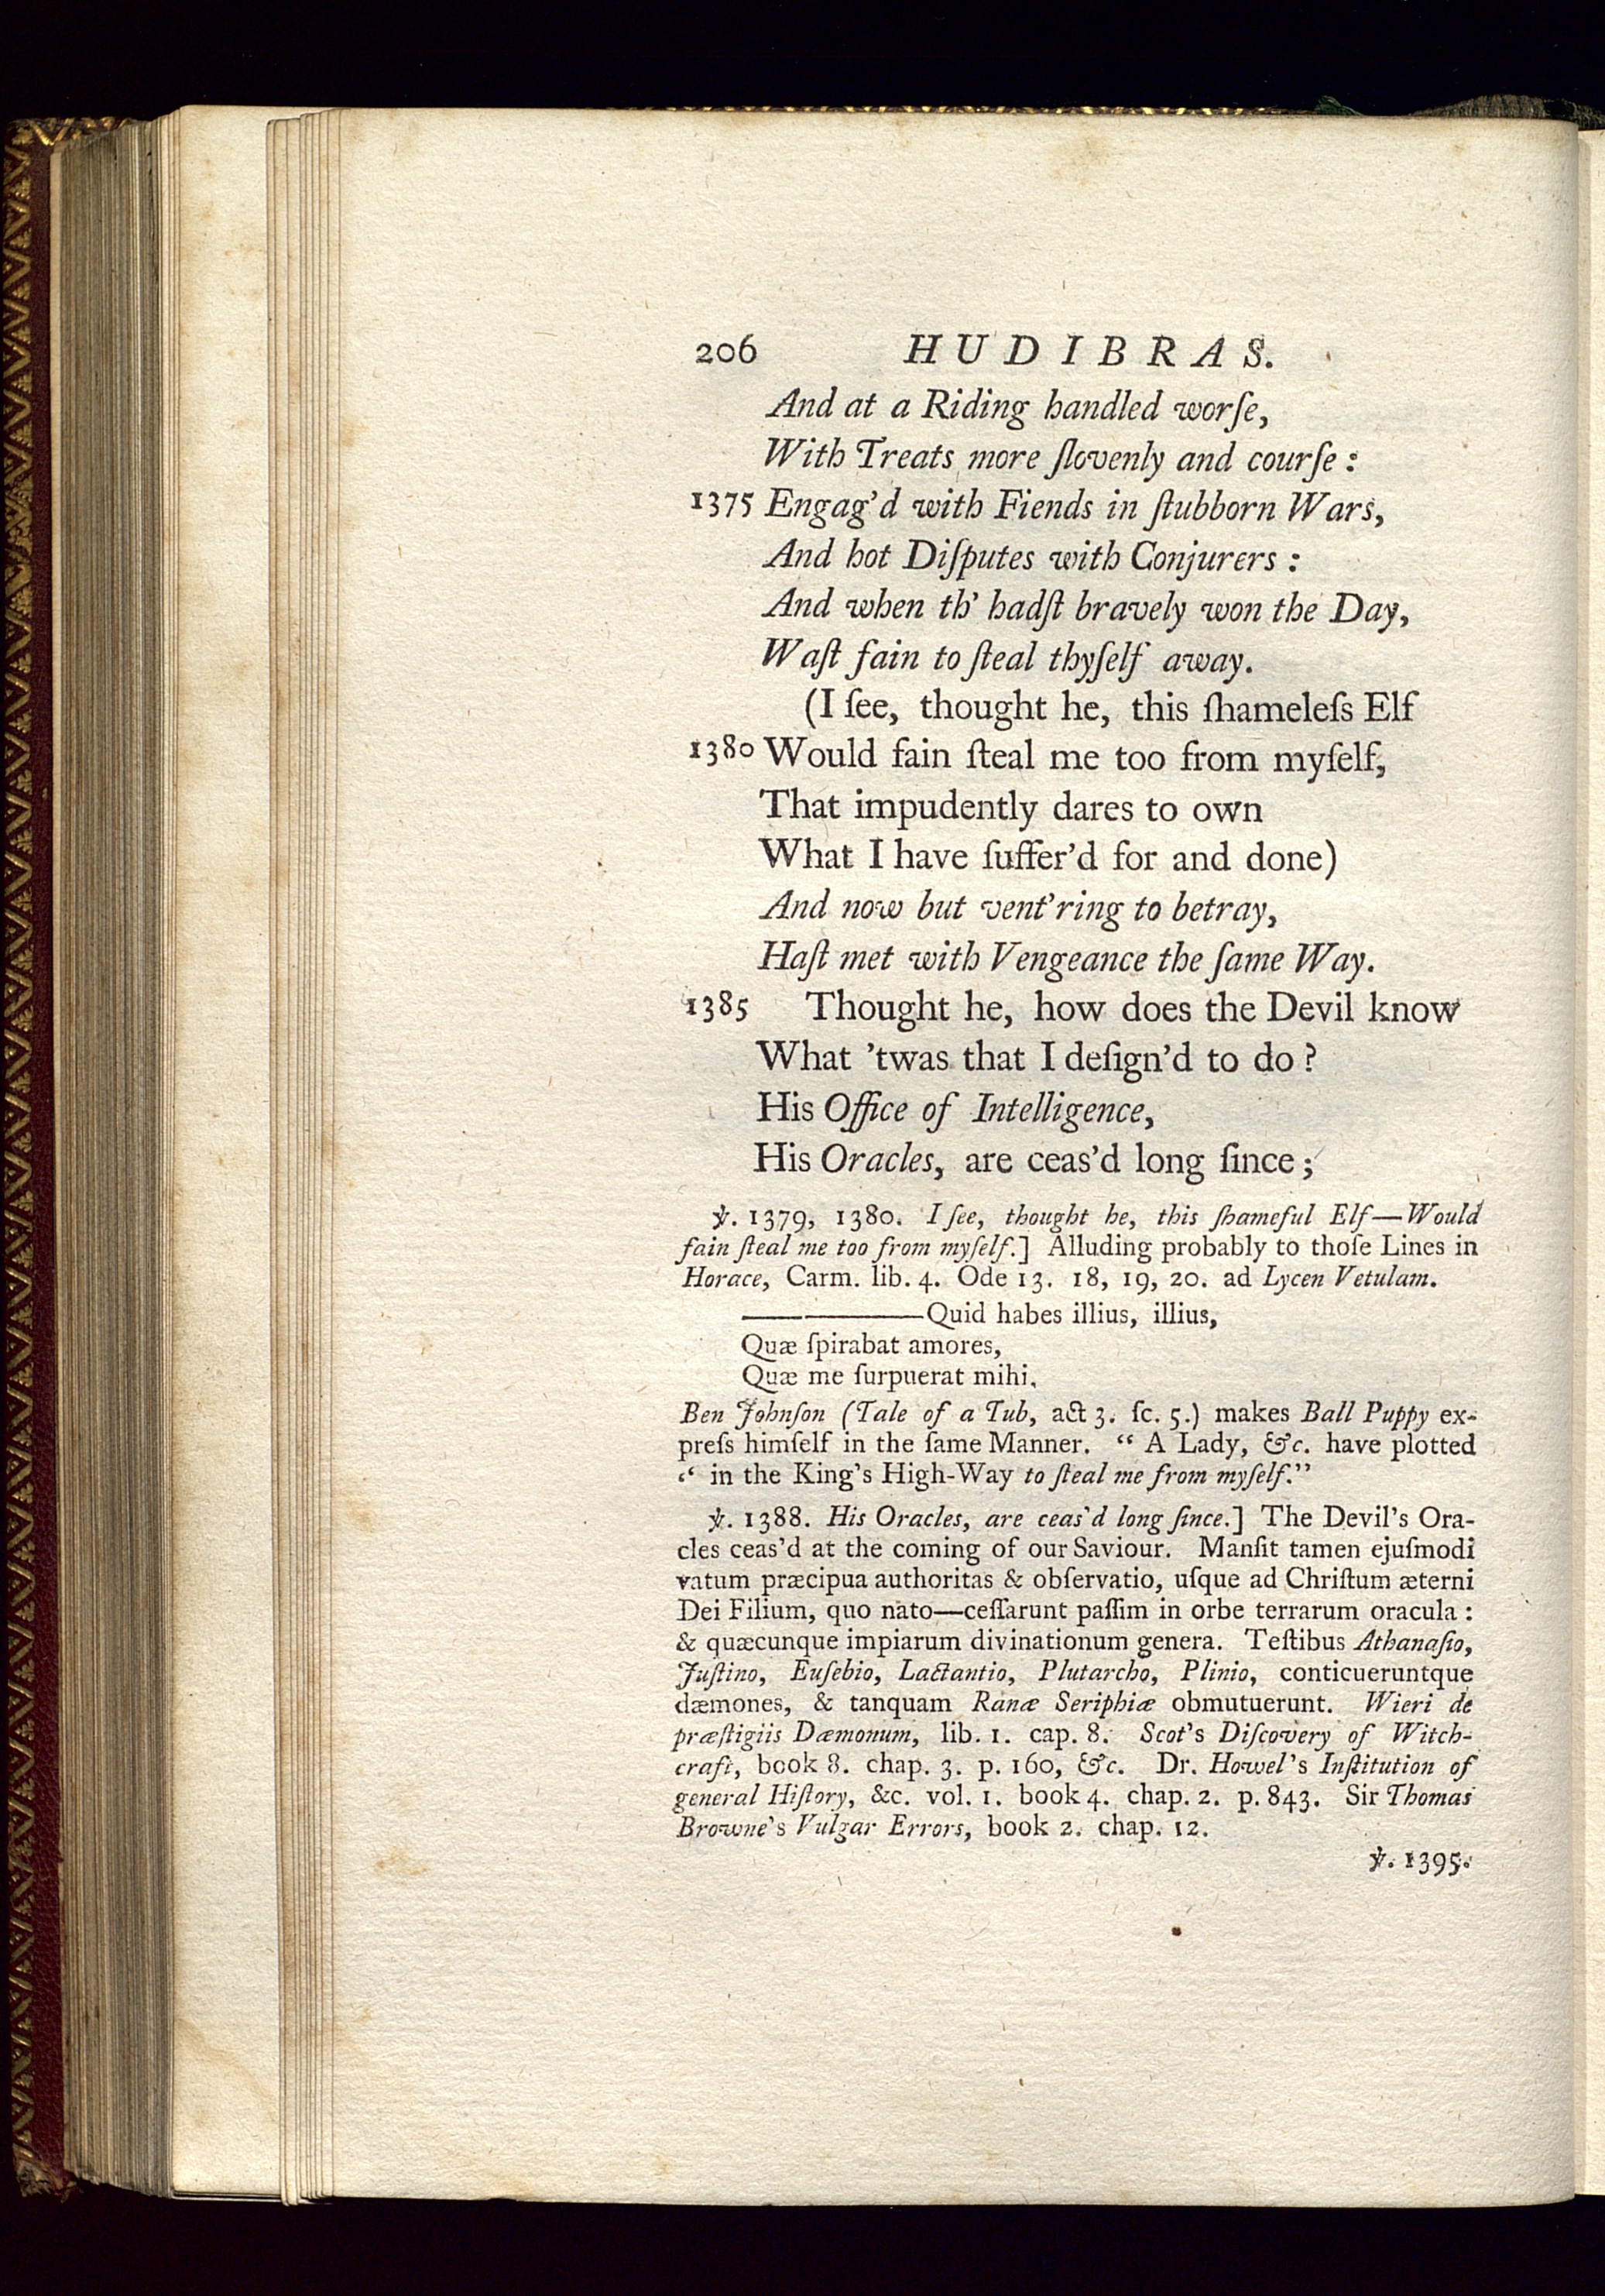 206 HUDIBRAS.
And at a Riding handled worſe,
With Treats more ſlovenly and courſe :
1375 Engag'd with Fiends in ſtubborn Wars,
And hot Diſputes with Conjurers :
And when th' hadſt bravely won the Day,
Waſt fain to ſteal thyſelf away.
(I ſee, thought he, this ſhameleſs Elf
1380 Would fain ſteal me too from myſelf,
That impudently dares to own
What I have ſuffer'd for and done)
And now but vent'ring to betray,
Haſt met with Vengeance the ſame Way.
1385 Thought he, how does the Devil know
What 'twas that I deſign'd to do ?
His Office of Intelligence,
His Oracles, are ceas'd long ſince ;
℣. 1379, 1380. I ſee, thought he, this ſhameful Elf—Would
fain ſteal me too from myſelf.] Alluding probably to thoſe Lines in
Horace, Carm. lib. 4. Ode 13. 18, 19, 20. ad Lycen Vetulam.
——————Quid habes illius, illius,
Quæ ſpirabat amores,
Quæ me ſurpuerat mihi.
Ben Johnſon (Tale of a Tub, act 3. ſc. 5.) makes Ball Puppy ex-
preſs himſelf in the ſame Manner. “ A Lady, &c. have plotted
“ in the King's High-Way to ſteal me from myſelf.”
℣. 1388. His Oracles, are ceas'd long ſince.] The Devil's Ora-
cles ceas'd at the coming of our Saviour. Manſit tamen ejuſmodi
vatum præcipua authoritas & obſervatio, uſque ad Chriſtum æterni
Dei Filium, quo nato—ceſſarunt paſſim in orbe terrarum oracula :
& quæcunque impiarum divinationum genera. Teſtibus Athanaſio,
Juſtino, Euſebio, Lactantio, Plutarcho, Plinio, conticueruntque
dæmones, & tanquam Ranæ Seriphiæ obmutuerunt. Wieri de
præſtigiis Dæmonum, lib. 1. cap. 8. Scot's Diſcovery of Witch-
craft, book 8. chap. 3. p. 160, &c. Dr. Howel's Inſtitution of
general Hiſtory, &c. vol. 1. book 4. chap. 2. p. 843. Sir Thomas
Browne's Vulgar Errors, book 2. chap. 12.
℣. 1395.